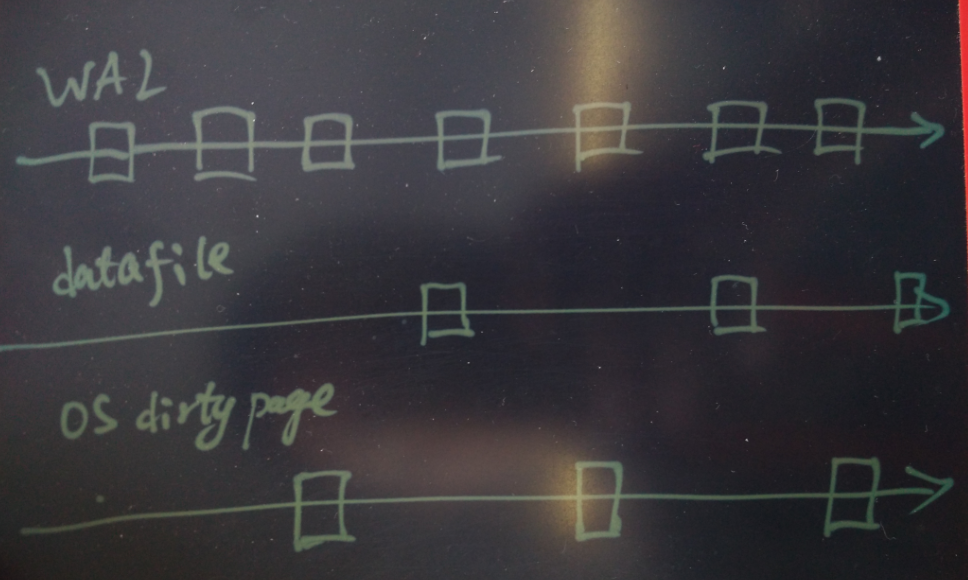 WAL
datafile
OS dirty page